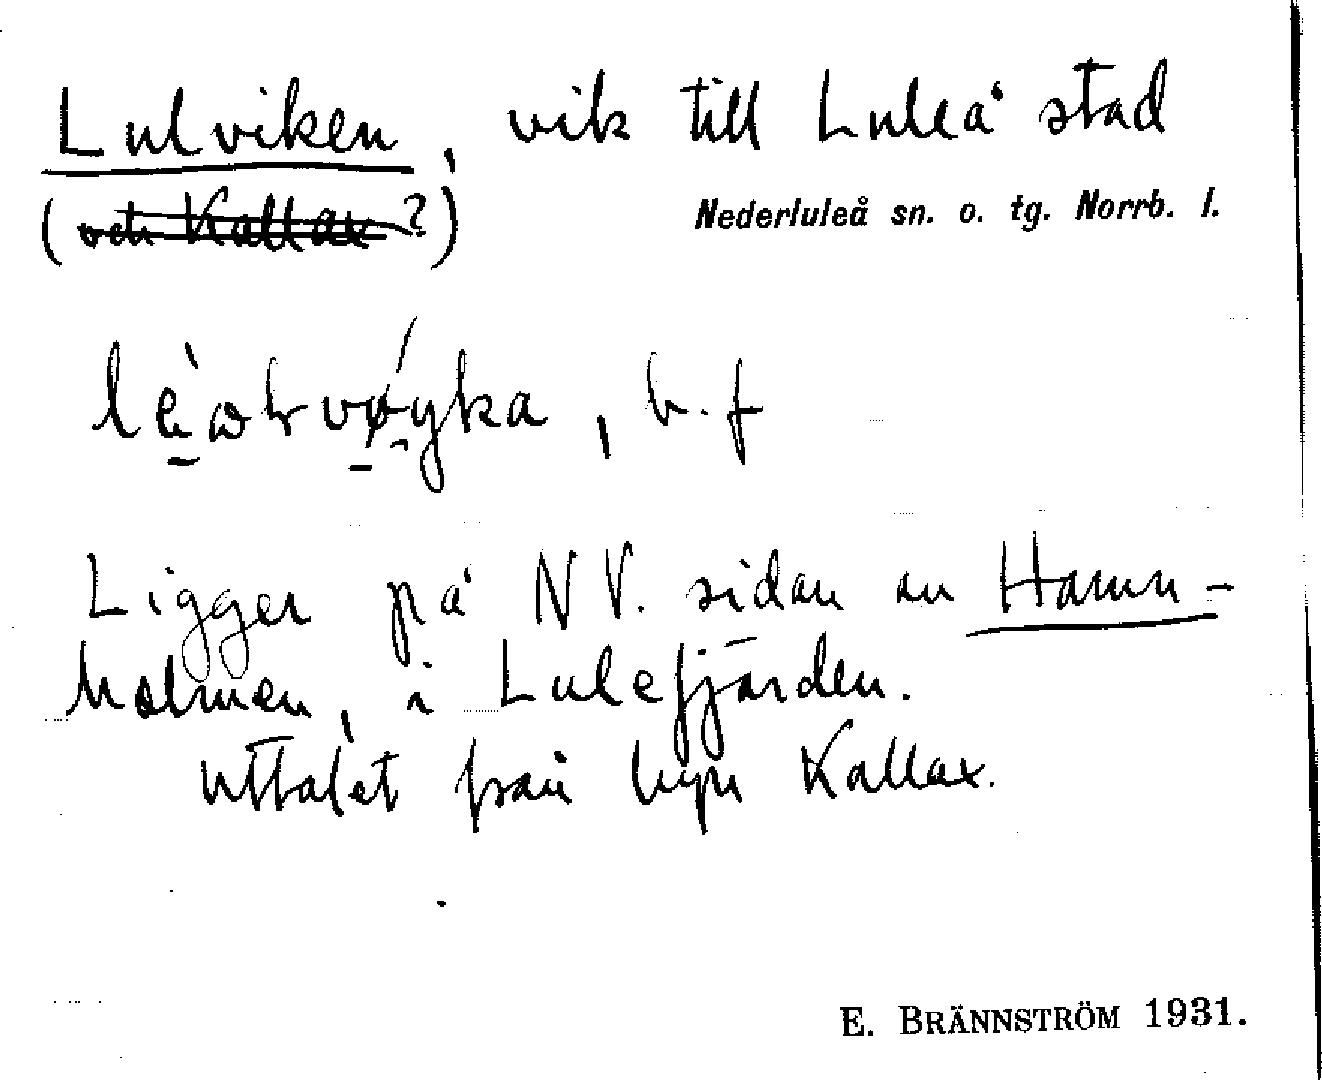 Lulviken, vik till Luleå stad
(och Kallax?)
Nederluleå sn. o. tg. Norrb. l.
b. f
Ligger på NV. sidan av Hamn-
holmen, i Lulefjärden.
Uttalet från byn Kallax.
E. BRÄNNSTRÖM 1931.